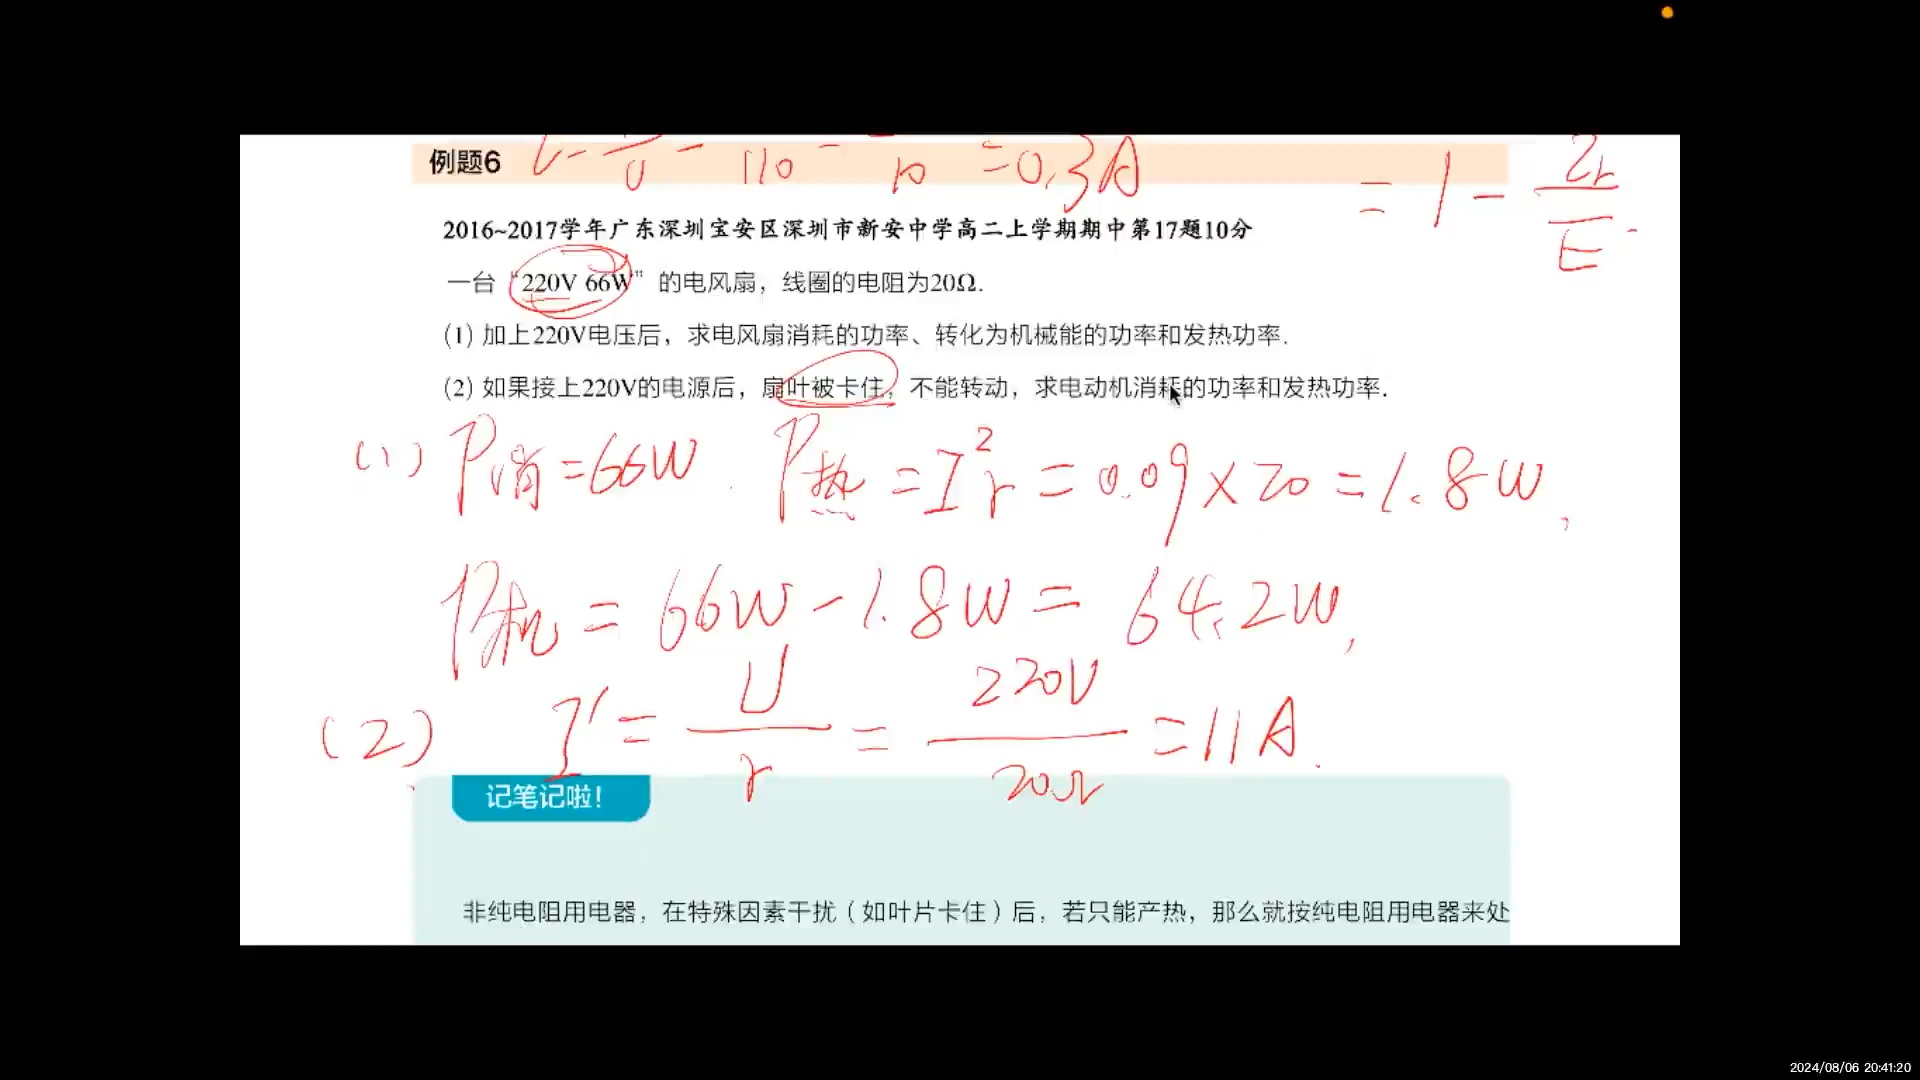 例题6
= 0.3A
= 1 - Ir/E
2016~2017学年广东深圳宝安区深圳市新安中学高二上学期期中第17题10分
一台“220V 66W”的电风扇，线圈的电阻为20Ω.
(1) 加上220V电压后，求电风扇消耗的功率、转化为机械能的功率和发热功率.
(2) 如果接上220V的电源后，扇叶被卡住，不能转动，求电动机消耗的功率和发热功率.
(1) P消=66W. P热 = I²r = 0.09×20 = 1.8W,
P机 = 66W - 1.8W = 64.2W,
(2) I' = U/r = 220V/20Ω = 11A.
记笔记啦！
非纯电阻用电器，在特殊因素干扰（如叶片卡住）后，若只能产热，那么就按纯电阻用电器来处
2024/08/06 20:41:20